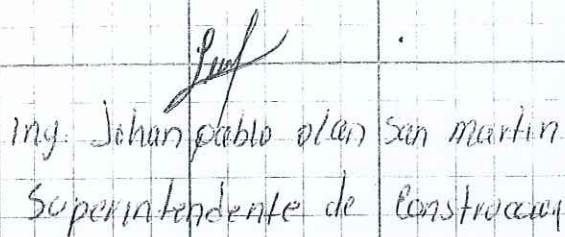 Ing. Johan pablo olan San martin
Superintendente de Construccion